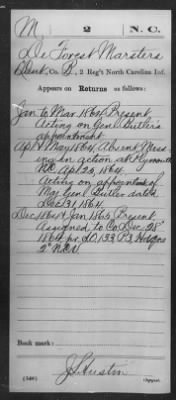 M 2 N.C.
De Forest Marsters
Lieut., Co. B, 2 Reg't North Carolina Inf.
Appears on Returns as follows:
Jan to Mar 1864, Present
Acting on Genl Butler's
appointment
Apr & May 1864, Absent Miss
ing in action at Plymouth
N.C. Apr 20, 1864.
Acting on appointment of
Maj Genl Butler dated
Dec 31, 1864
Dec 1864 & Jan 1865 Present
Assigned to Co. Dec. 28
1864 pr S.O. 133 P3 Hdqrs
2" N.C.V.
Book mark:
J. S. Austin
(546) Copyist.